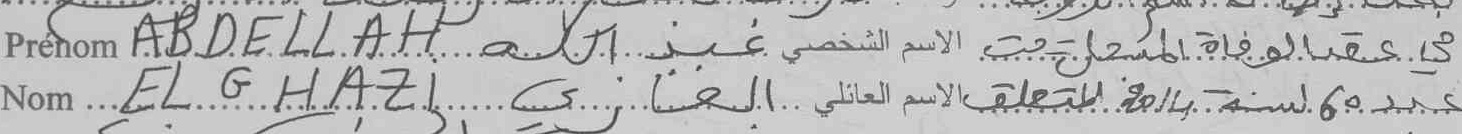 Prénom ABDELLAH عبد الله الاسم الشخصي في عقد الوفاة المسجل تحت
Nom EL GHAZI الغازي الاسم العائلي عدد 60 لسنة المتعلق